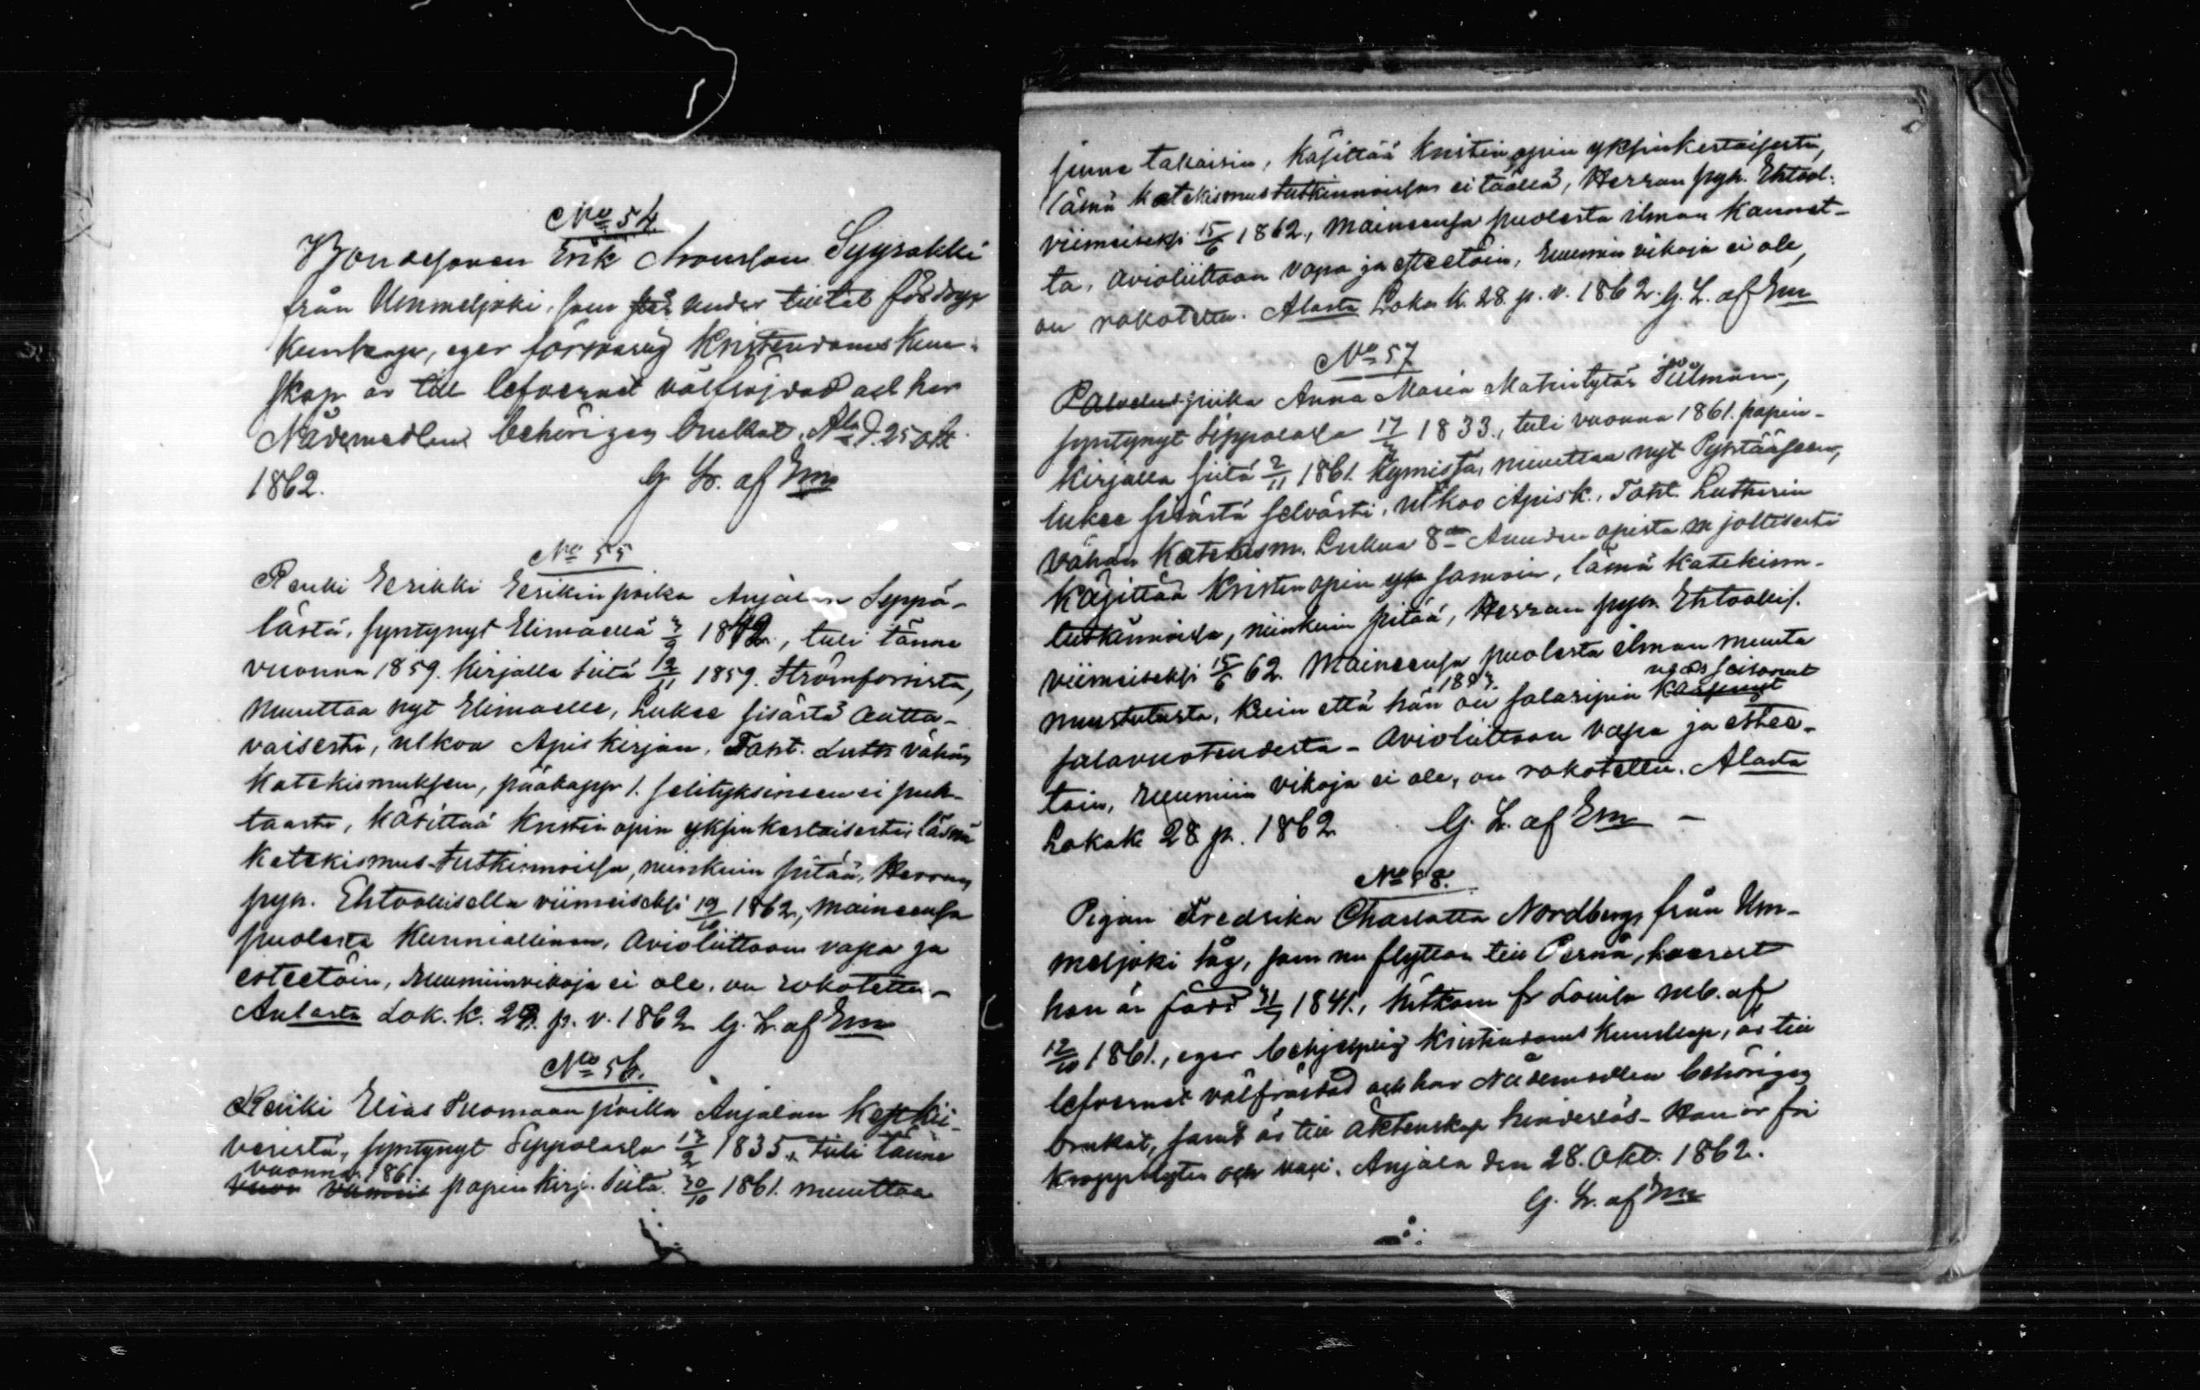 No 54.
Bondesonen Erik Aronsson Syyrakki
från Ummeljoki, som står under tiltal för dryc
kenskap, eger försvarlig Kristendoms kun-
skap är till lefvernet välfrejdad och har
Nådemedlen behörigen brukat. Ala d. 25 Okt.
1862. G. L. af Em
No 55
Renki Eerikki Eerikinpoika Anjalan Seppä-
lästä, syntynyt Elimäellä 3/9 1842, tuli tänne
vuonna 1859. Kirjalla siitä 12/11 1859. Strömforsista,
muuttaa nyt Elimäelle, Lukee sisältä autta-
vaisesti, ulkoa Apiskirjan, Toht. Luth. vähän
Katekismuksen, pääkapp. 1. selityksineen ei puh-
taasti, käsittää kristin opin yksinkertaisesti, läsnä
Katekismus-tutkinnoissa, niinkuin pitää, Herran
pyh. Ehtoollisella viimeiseksi 19/10 1862, maineensa
puolesta kunniallinen, avioliittoon vapa ja
esteetöin, Ruumiin vikoja ei ole, on rokotettu.
Anlasta Lok. k. 28. p. v. 1862 G. L. af Em
No 56.
Renki Elias Tuomaanpoika Anjalan
veristä, syntynyt Sippolassa 17/2 1835, tuli tänne
vuonna 1861
papin kirj. siitä 30/10 1861. muuttaa
sinne takaisin, käsittää kristin opin yksinkertaisesti,
läsnä katekismustutkinnoissa ei täällä, Herran pyh. Ehtool.
viimeiseksi 15/6 1862, maineensa puolesta ilman kannet-
ta, avioliittoon vapa ja esteetöin, Ruumin vikoja ei ole,
on rokotettu. Alasta Loka k. 28. p. v. 1862. G. L. af Em
No 57
Palveluspiika Anna Maria Matintytär
syntynyt Sippolassa 17/3 1833, tuli vuonna 1861. papin-
kirjalla siitä 2/11 1861. Kymistä, muuttaa nyt Pyhtääseen,
lukee sisältä selvästi, ulkoo Apisk. Toht. Lutherin
vähän Katekism. Lukua 8an Armden opista m joltisesti
käsittää kristin opin samoin, läsnä Katekism-
tutkinnoissa, niinkuin pitää, Herran pyh. Ehtoollis.
viimeiseksi 15/6 62. Maineensa puolesta ilman muuta
muistutusta, kuin että hän on salaripin
salavuoteudesta - Avioliittoon vapa ja estee-
töin, Ruumiin vikoja ei ole, on rokotettu. Alasta
Lokak. 28 p. 1862 G. L. af Em -
No 58.
Pigan Fredrika Charlotta Nordberg från Um-
meljoki låg, som nu flyttar till Pernå, hvarest
hon är född 31/7 1841, hitkom fr Lovisa mb. af
12/10 1861, eger behjelplig kristendoms kunskap, är till
lefvernet välfräjdad och har Nådemedlen behörigen
brukat, samt är till äktenskap hinderlös - Hon är fri
kroppslyten och vac. Anjala den 28. Okt. 1862.
G. L. af Em